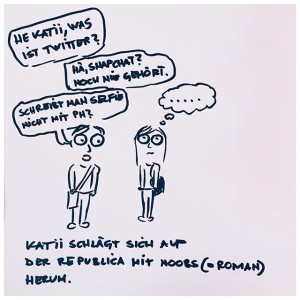 HE KATII, WAS
IST TWITTER?
HÄ, SNAPCHAT?
NOCH NIE GEHÖRT.
SCHREIBT MAN SELFIE
NICHT MIT PH?
......
KATII SCHLÄGT SICH AUF
DER REPUBLICA MIT NOOBS (=ROMAN)
HERUM.